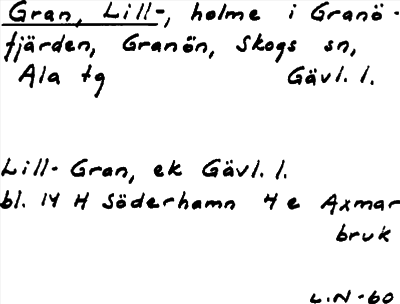 Gran, Lill-, holme i Granö-
fjärden, Granön, Skogs sn,
Ala tg Gävl. l.
Lill-Gran, ek Gävl. l.
bl. 14 H Söderhamn 4 e Axmar
bruk
L.N-60